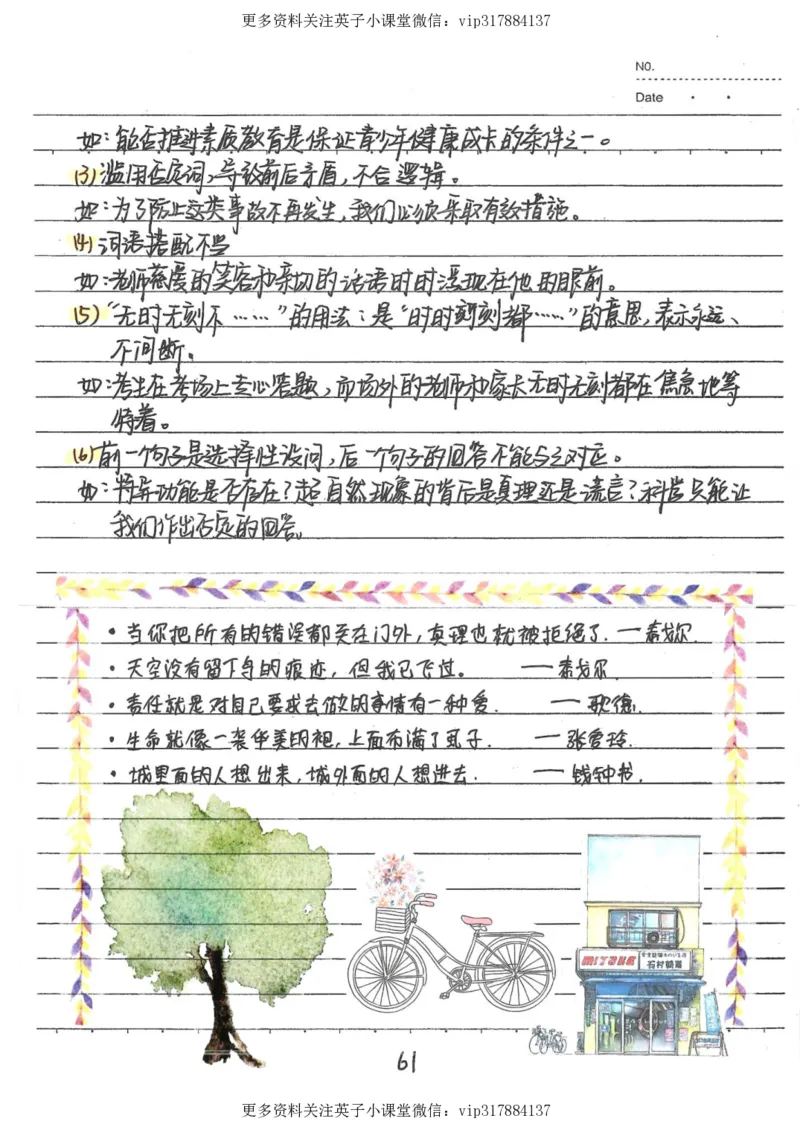 更多资料关注英子小课堂微信：vip317884137
NO.
Date
如：能否推进素质教育是保证青少年健康成长的条件之一。
(3)滥用否定词，导致前后矛盾，不合逻辑。
如：为了防止这类事故不再发生，我们必须采取有效措施。
(4)词语搭配不当
如：老师慈爱的笑容和亲切的话语时时浮现在他的眼前。
(5)“无时无刻不……”的用法：是“时时刻刻都……”的意思，表示永远、
不间断。
如：考生在考场上专心答题，而场外的老师和家长无时无刻都在焦急地等
待着。
(6)前一个句子是选择性设问，后一个句子的回答不能与之对应。
如：特异功能是否存在？超自然现象的背后是真理还是谎言？科学只能让
我们作出否定的回答。
·当你把所有的错误都关在门外，真理也就被拒绝了.一泰戈尔.
·天空没有留下鸟的痕迹，但我已飞过。 一泰戈尔.
·责任就是对自己要求去做的事情有一种爱. 一歌德.
·生命就像一袭华美的袍，上面布满了虱子. 一张爱玲.
·城里面的人想出来，城外面的人想进去. 一钱钟书.
石村鶴蔵
61
更多资料关注英子小课堂微信：vip317884137